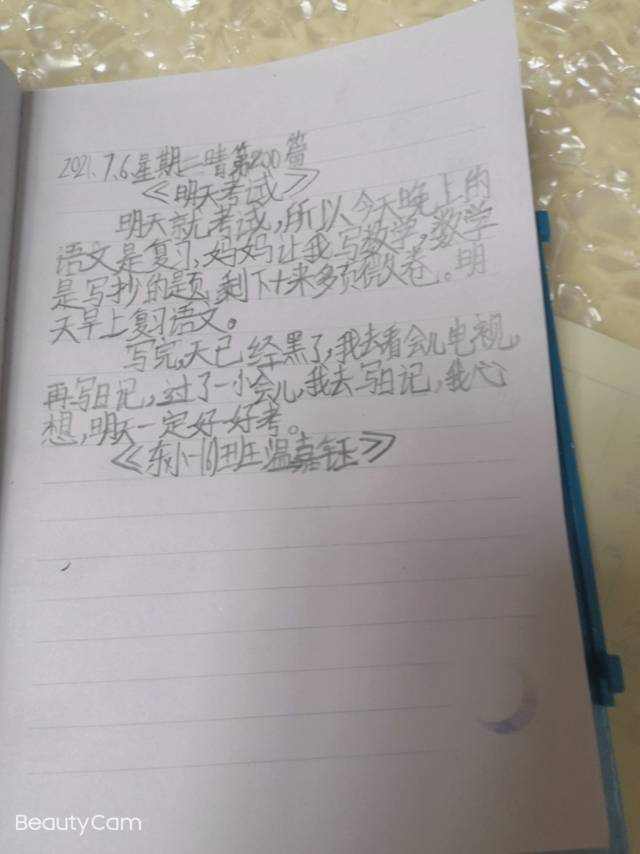 2021.7.6.星期二晴第200篇
《明天考试》
明天就考试,所以今天晚上的
语文是复习,妈妈让我写数学,数学
是写抄的题,剩下十来多页微卷。明
天早上复习语文。
写完,天已经黑了,我去看会儿电视,
再写日记,过了一小会儿,我去写日记,我心
想,明天一定好好考。
《东小一(6)班温嘉钰》
BeautyCam